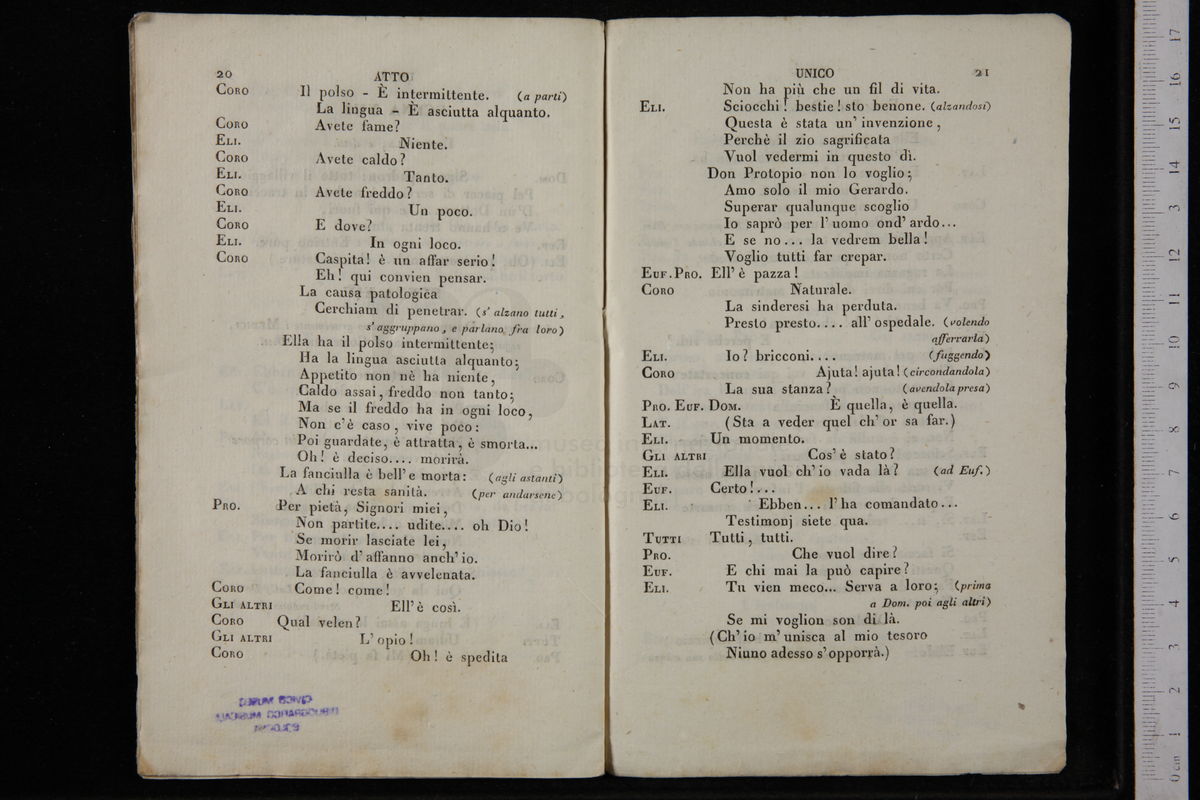 20 ATTO
CORO Il polso - È intermittente. (a parti)
La lingua - È asciutta alquanto.
CORO Avete fame?
ELI. Niente.
CORO Avete caldo?
ELI. Tanto.
CORO Avete freddo?
ELI. Un poco.
CORO E dove?
ELI. In ogni loco.
CORO Caspita! è un affar serio!
Eh! qui convien pensar.
La causa patologica
Cerchiam di penetrar. (s' alzano tutti,
s' aggruppano, e parlano fra loro)
Ella ha il polso intermittente;
Ha la lingua asciutta alquanto;
Appetito non nè ha niente,
Caldo assai, freddo non tanto;
Ma se il freddo ha in ogni loco,
Non c'è caso, vive poco:
Poi guardate, è attratta, è smorta...
Oh! è deciso.... morirà.
La fanciulla è bell' e morta: (agli astanti)
A chi resta sanità. (per andarsene)
PRO. Per pietà, Signori miei,
Non partite.... udite.... oh Dio!
Se morir lasciate lei,
Morirò d' affanno anch' io.
La fanciulla è avvelenata.
CORO Come! come!
GLI ALTRI Ell' è così.
CORO Qual velen?
GLI ALTRI L' opio!
CORO Oh! è spedita
UNICO 21
Non ha più che un fil di vita.
ELI. Sciocchi! bestie! sto benone. (alzandosi)
Questa è stata un' invenzione,
Perchè il zio sagrificata
Vuol vedermi in questo dì.
Don Protopio non lo voglio;
Amo solo il mio Gerardo.
Superar qualunque scoglio
Io saprò per l' uomo ond' ardo...
E se no... la vedrem bella!
Voglio tutti far crepar.
EUF. PRO. Ell' è pazza!
CORO Naturale.
La sinderesi ha perduta.
Presto presto.... all' ospedale. (volendo
afferrarla)
ELI. Io? bricconi.... (fuggendo)
CORO Ajuta! ajuta! (circondandola)
La sua stanza? (avendola presa)
PRO. EUF. DOM. È quella, è quella.
LAT. (Sta a veder quel ch' or sa far.)
ELI. Un momento.
GLI ALTRI Cos' è stato?
ELI. Ella vuol ch' io vada là? (ad Euf.)
EUF. Certo!...
ELI. Ebben... l' ha comandato...
Testimonj siete qua.
TUTTI Tutti, tutti.
PRO. Che vuol dire?
EUF. E chi mai la può capire?
ELI. Tu vien meco... Serva a loro; (prima
a Dom. poi agli altri)
Se mi voglion son di là.
(Ch' io m' unisca al mio tesoro
Niuno adesso s' opporrà.)